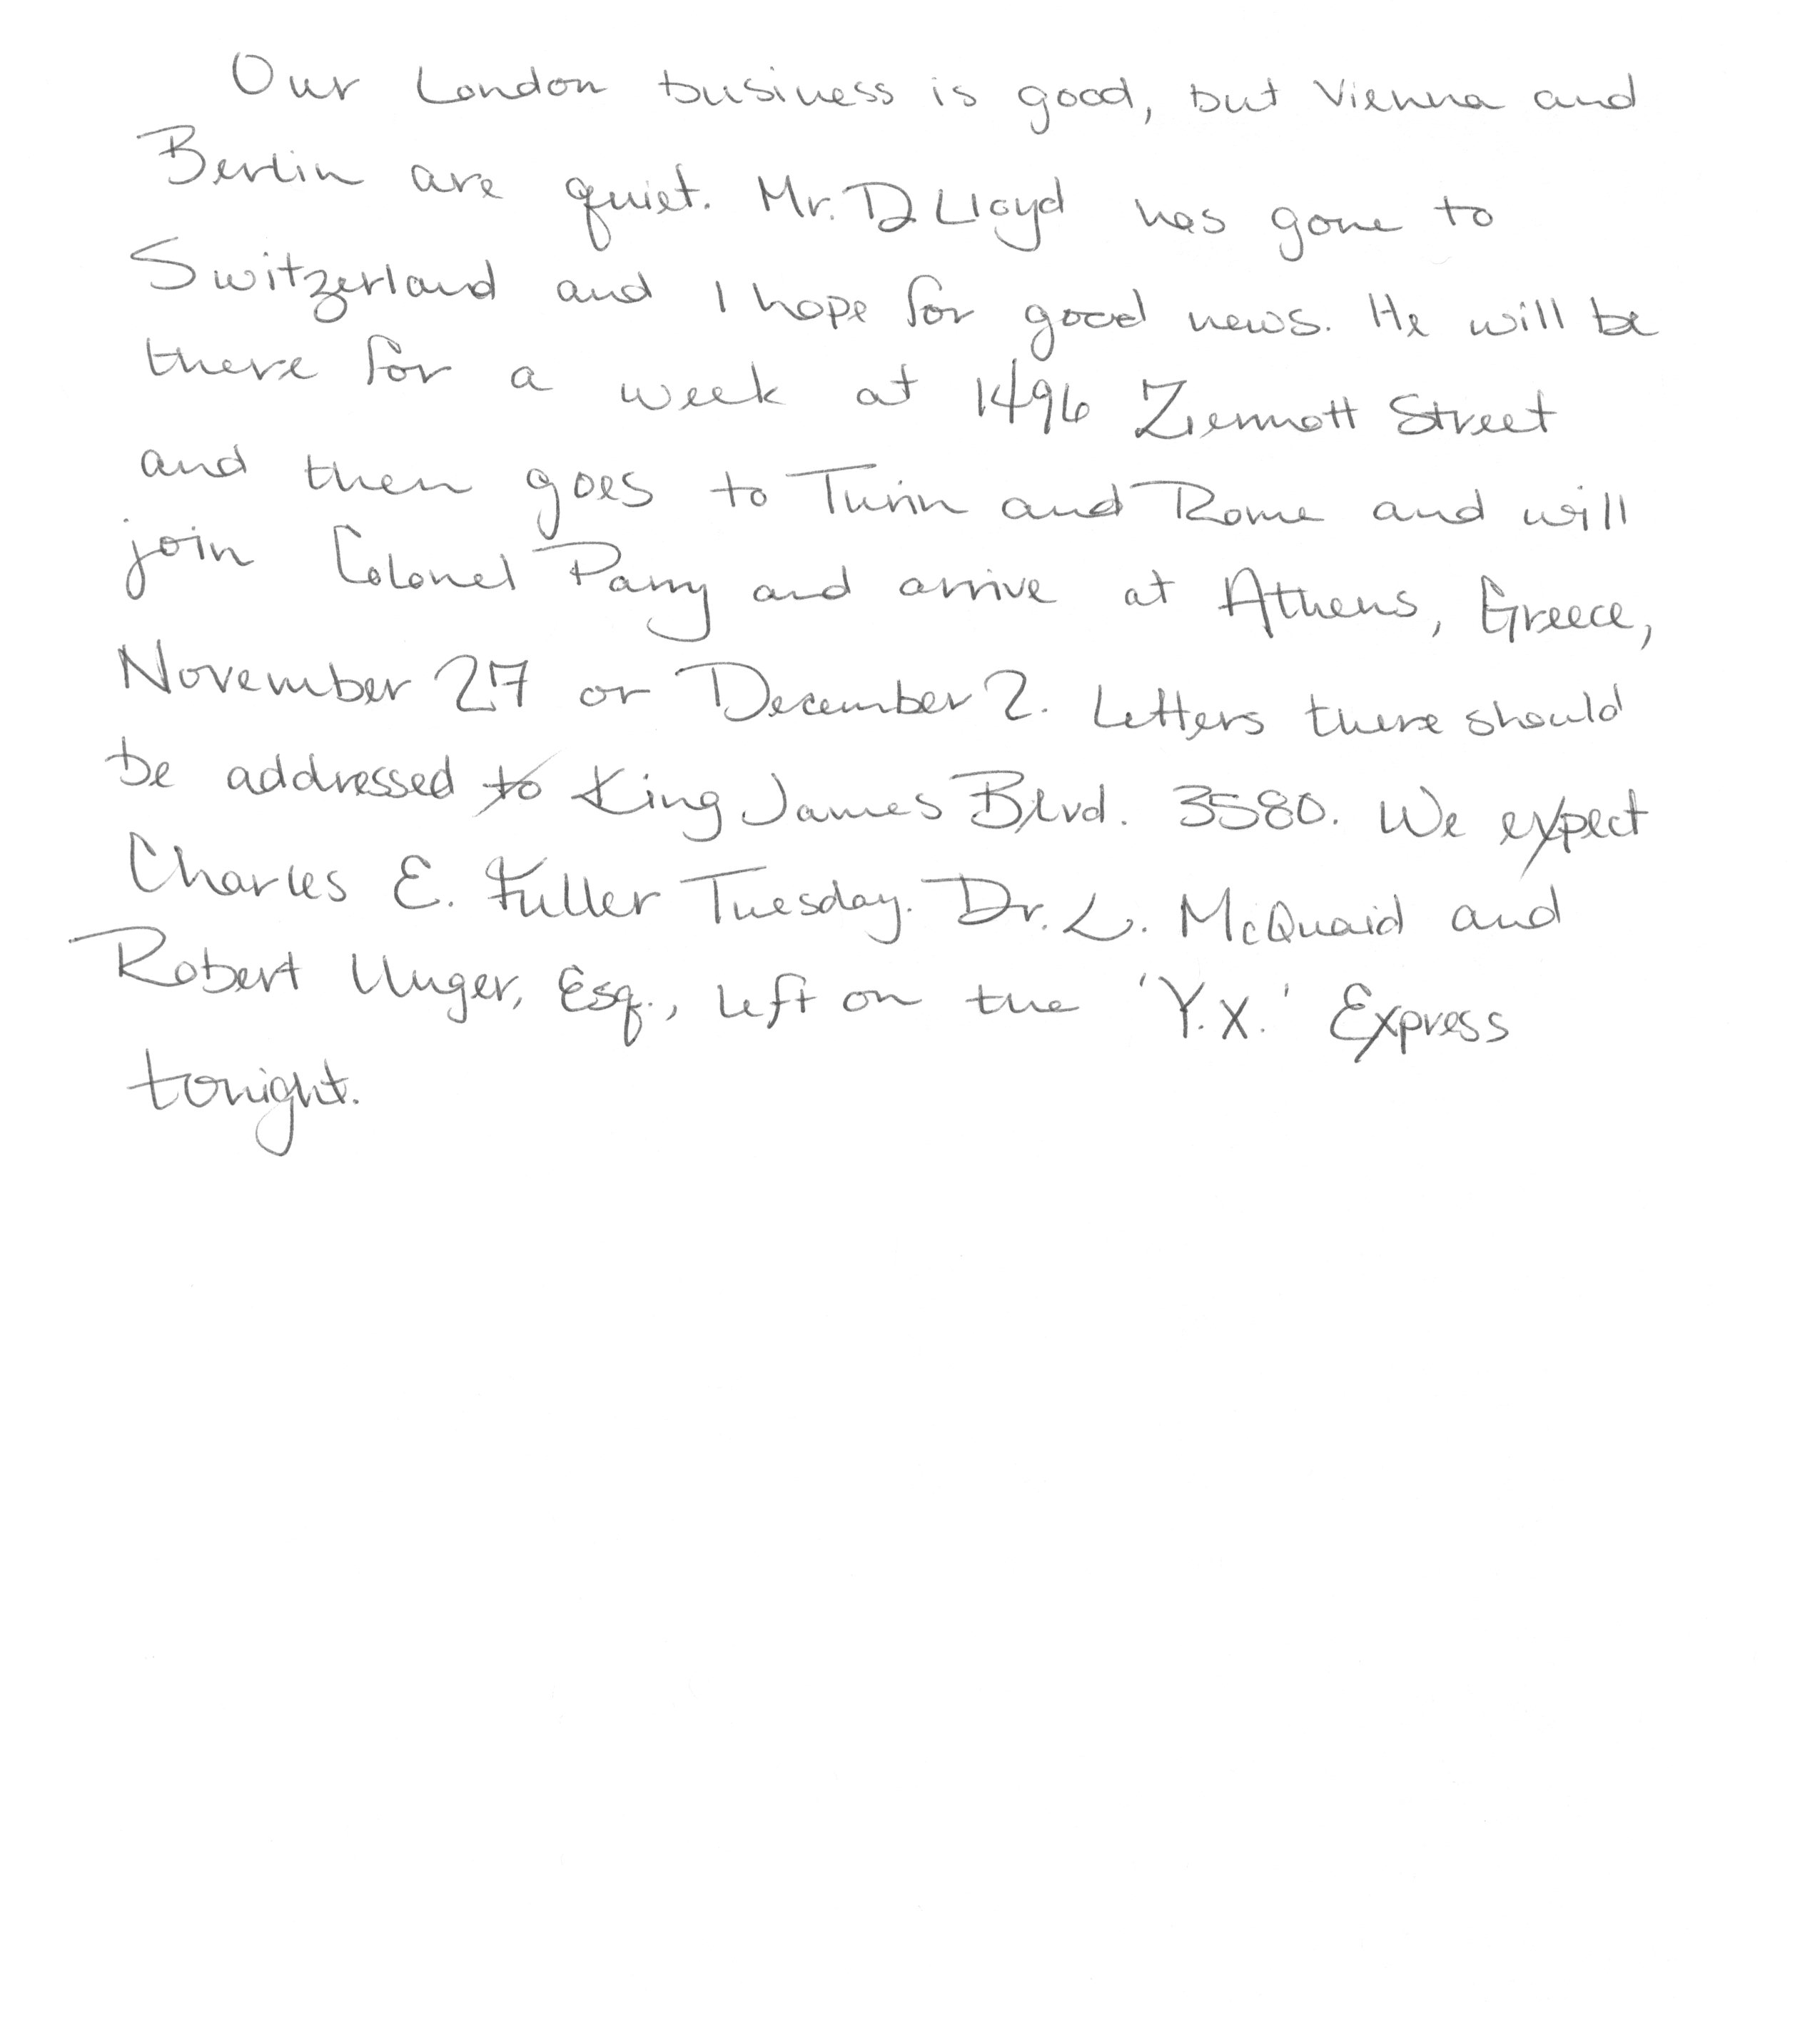 Our London business is good, but Vienna and
Berlin are quiet. Mr. D. Lloyd has gone to
Switzerland and I hope for good news. He will be
there for a week at 1496 Ziemott Street
and then goes to Turin and Rome and will
join Colonel Parry and arrive at Athens, Greece,
November 27 or December 2. Letters there should
be addressed to King James Blvd. 3580. We expect
Charles E. Fuller Tuesday. Dr. L. McQuaid and
Robert Unger, Esq., left on the 'Y.X.' Express
tonight.